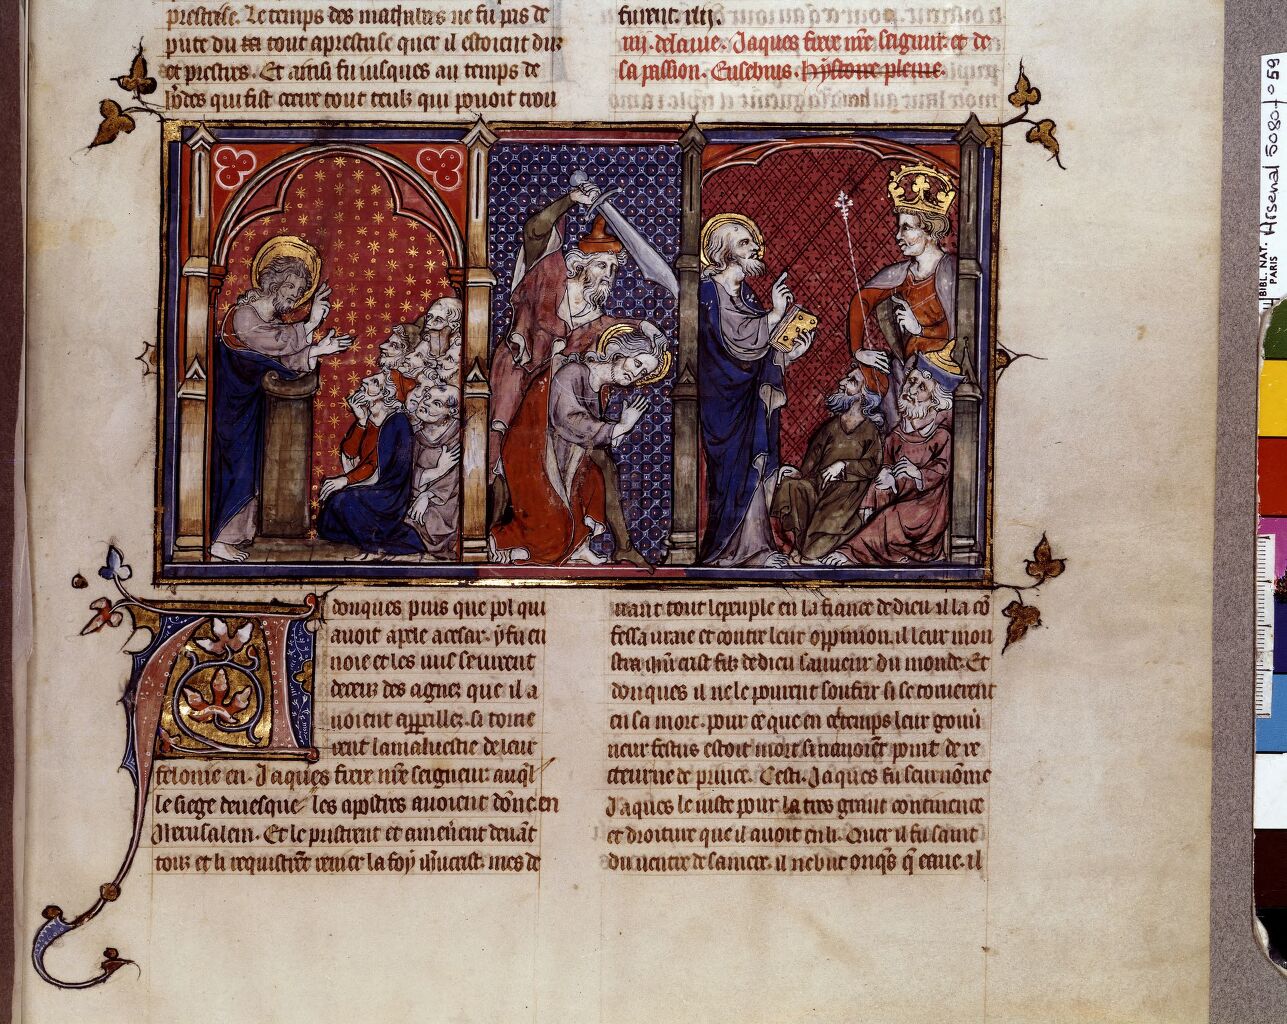 prestrese. Le temps des machabes ne fu pas de
pute du tout a prestrise quer il estoient dus
et prestres. Et ainsi fu iusques au temps de
qui fist cueur tout ceulz qui pouoit trou
furent. xiij.
iiij. de laiue. Jaques frere nre seigneur. et de
sa passion. Eusebius. hystoire pleine.
A donques puis que pol qui
auoit apele a cesar. y fu en
uoie et les iuis seuirent
deceuz des agues que il a
uoient apparillez. si torne
rent la mauuestie de leur
felonie en. Jaques frere nre seigneur. auql
le siege deuesque les apostres auoient done en
Jherusalem. Et le pristrent et amenerent deuant
touz et li requistrent renier la foy ihucrist. mes de
uant tout le peuple en la fiance de dieu il la co
fessa uraie et contre leur oppinion. il leur mon
stra crist filz de dieu sauueur du monde. Et
donques il ne le pourent soufrir si se tornerent
en sa mort. pour ce que en ce temps leur gouu
neur festus estoit mort si nauoient point de re
cteur ne de prince. Cesti. Jaques fu seurnome
Jaques le iuste pour la tres grant continence
et droiture que il auoit en li. Quer il fu saint
du uentre de sa mere. il ne but onqs q eaue. il
BIBL. NAT.
PARIS
Arsenal 5080 f° 59